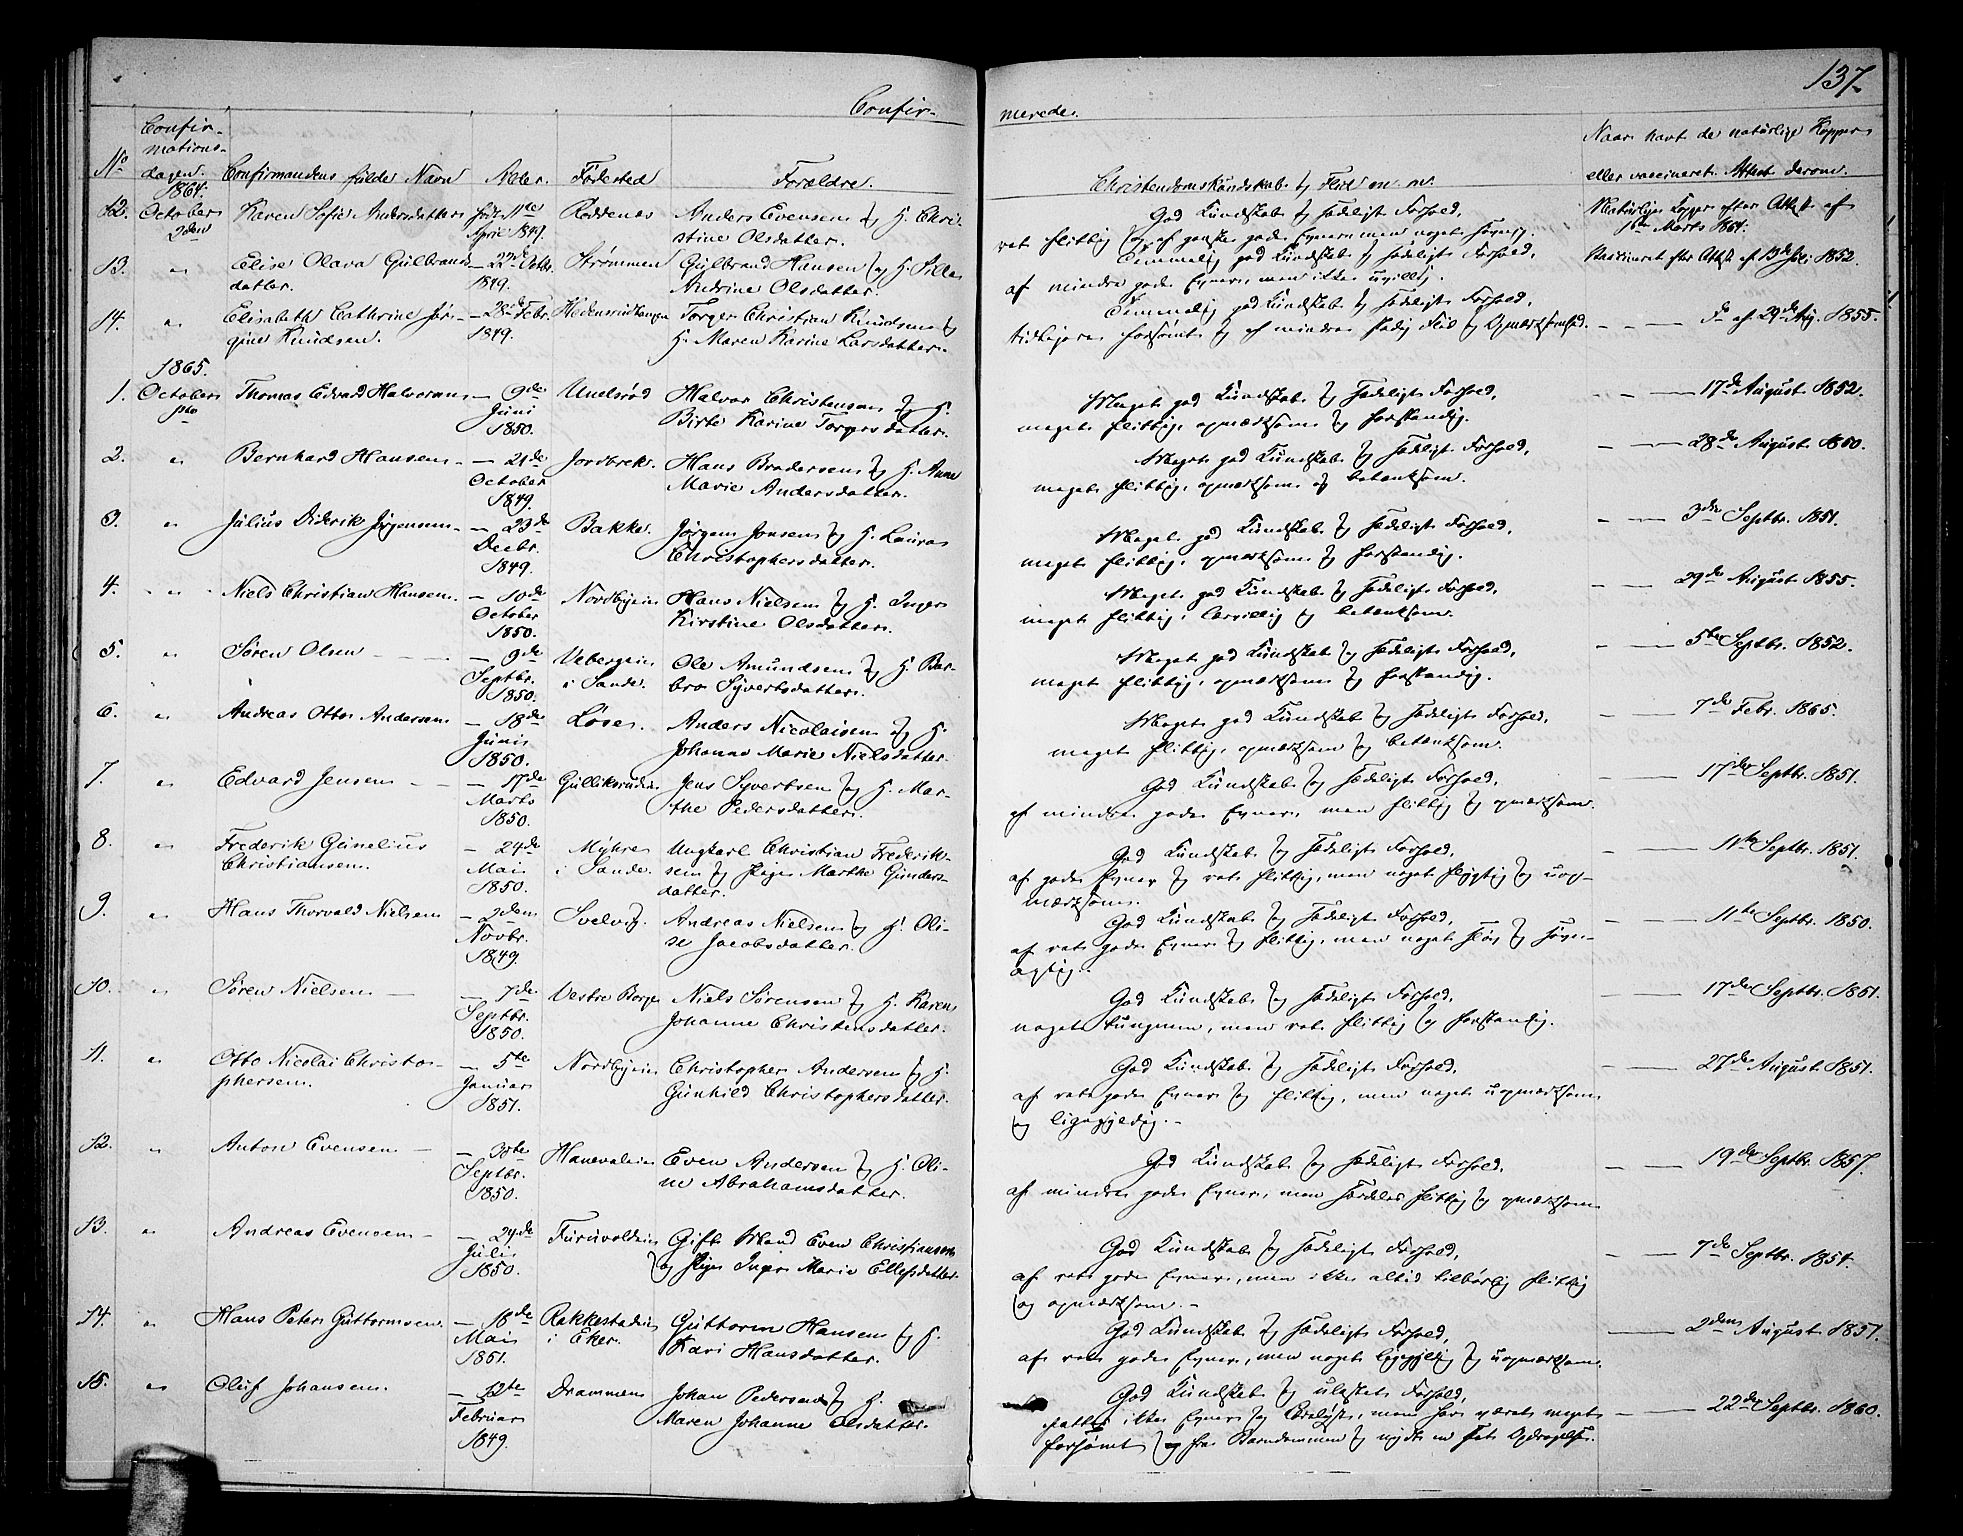 137.
Confir-
merede.
Confir-
mations-
No dagen. Confirmandens fulde Navn Alder. Födested Forældre. Christendomskundskab, Flid m. m. Naar havt de naturlige Kopper
eller vaccineret. Attest derom.
1864.
12. October Karen Sofie Andersdatter født 11te Roddenes Anders Evensen og H. Chri- God Kundskab og sædeligt Forhold, Naturlige Kopper efter Attest af
2den April 1849. stine Olsdatter. ret flittig og af ganske gode Evner men noget
Marts 1864.
13. " Elise Olava Gulbrands- — 22de Octbr. Strømmen Gulbrand Hansen og H. Temmelig god Kundskab og sædeligt Forhold, Vaccineret efter Attest af 13de Juli 1852.
datter. 1849. Andrine Olsdatter. af mindre gode Evner, men ikke
14. " Elisabeth Cathrine Jør- — 28de Febr. Torger Christian Knudsen og Temmelig god Kundskab og sædeligt Forhold,
gine Knudsen. 1849. H. Maren Karine Larsdatter. tidligere forsømt og af mindre stadig Flid og Opmærksomhed. — — Do af 29de Aug. 1855.
1865.
1. October Thomas Edvard Halvorsen — 9de Unelsrød Halvor Christensen og H. Meget god Kundskab og sædeligt Forhold, — — 17de August 1852.
1ste Juni Birte Karine Torgersdatter. meget flittig, opmærksom og forstandig.
1850.
2. " Bernhard Hansen — 21de Jordbrek. Hans Brodersen og H. Anne Meget god Kundskab og sædeligt Forhold, — — 28de August 1850.
October Marie Andersdatter. meget flittig, opmærksom og betænksom.
1849.
3. " Julius Diderik Jørgensen — 23de Bakke. Jørgen Jonsen og H. Laura Meget god Kundskab og sædeligt Forhold, — — 3die Septbr. 1851.
Decbr. Christophersdatter. meget flittig, opmærksom og forstandig.
1849.
4. " Niels Christian Hansen. — 10de Nordbyeie Hans Nielsen og H. Inger Meget god Kundskab og sædeligt Forhold, — — 29de August 1855.
October Kirstine Olsdatter. meget flittig, lærvillig og betænksom.
1850.
5. " Søren Olsen — 9de Vebergeie Ole Amundsen og H. Bar- Meget god Kundskab og sædeligt Forhold, — — 5te Septbr. 1852.
Septbr. i Sande. bro Syvertsdatter. meget flittig, opmærksom og forstandig.
1850.
6. " Andreas Otto Andersen — 18de Løser. Anders Nicolaisen og H. Meget god Kundskab og sædeligt Forhold, — — 7de Febr. 1865.
Juni Johanne Marie Nielsdatter. meget flittig, opmærksom og betænksom.
1850.
7. " Edvard Jensen — 17de Gulliksrudeie Jens Syvertsen og H. Mar- God Kundskab og sædeligt Forhold, — — 17de Septbr. 1851.
Marts the Pedersdatter. af mindre gode Evner, men flittig og opmærksom.
1850.
8. " Frederik Gunelius — 24de Myhre Ungkarl Christian Frederik- God Kundskab og sædeligt Forhold, — — 11te Septbr. 1851.
Christiansen. Mai i Sande. sen og Pige Marthe Gunders- af gode Evner og ret flittig, men noget flygtig og uop-
1850. datter. mærksom.
9. " Hans Thorvald Nielsen — 2den Svelvig. Andreas Nielsen og H. Oli- God Kundskab og sædeligt Forhold, — — 11te Septbr. 1850.
Novbr. se Jacobsdatter. af ret gode Evner og flittig, men noget sløv og
1849. agtig.
10. " Søren Nielsen — 7de Vestre Borge Niels Sørensen og H. Karen God Kundskab og sædeligt Forhold, — — 17de Septbr. 1851.
Septbr. Johanne Christensdatter. noget tungnem, men ret flittig og forstandig.
1850.
11. " Otto Nicolai Christo- — 5te Nordbyeie Christopher Andersen og H. God Kundskab og sædeligt Forhold, — — 27de August 1851.
phersen. Januar Gunhild Christophersdatter. af ret gode Evner og flittig, men noget uopmærksom
1851. og ligegyldig. -
12. " Anton Evensen — 30te Hanevoldeie Even Andersen og H. Oli- God Kundskab og sædeligt Forhold, — — 19de Septbr. 1857.
Septbr. ne Abrahamsdatter. af mindre gode Evner, men særdeles flittig og opmærksom
1850.
13. " Andreas Evensen — 29de Furuvoldeie Gift Mand Even Christiansen God Kundskab og sædeligt Forhold, — — 7de Septbr. 1851.
Juli og Pige Inger Marie Ellefsdatter. af ret gode Evner, men ikke altid tilbørlig flittig
1850. og opmærksom. -
14. " Hans Peter Guttormsen — 18de Rakkestadeie Guttorm Hansen og H. God Kundskab og sædeligt Forhold, — 2den August 1851.
Mai i Eker. Kari Hansdatter. af ret gode Evner, men noget ligegyldig og uopmærksom.
1851.
15. " Oluf Johansen. — 12te Drammen Johan Pedersen og H. God Kundskab og ulastet Forhold, — — 22de Septbr. 1860.
Februar Maren Johanne Olsdatter. fattes ikke Evner og Lærelyst, men har været meget
1849. forsømt fra Barndommen og nydt en slet Opdragelse.